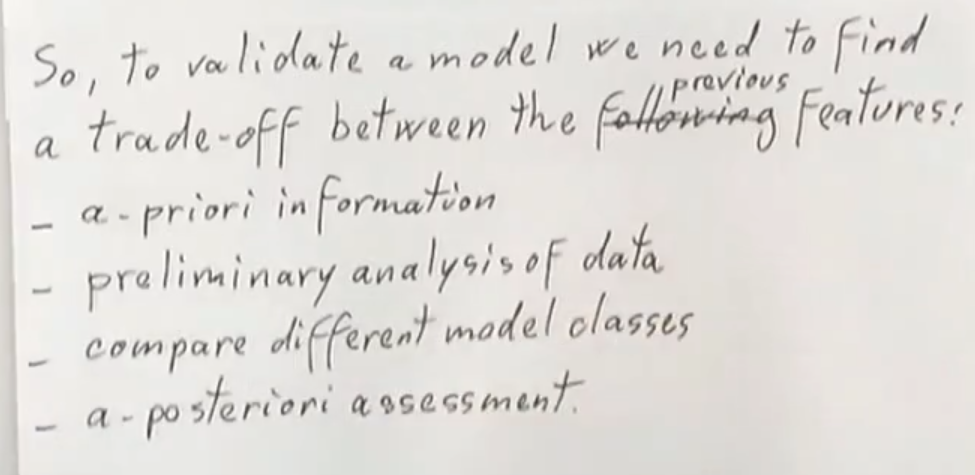 So, to validate a model we need to find
previous
a trade-off between the following features:
- a-priori information
- preliminary analysis of data
- compare different model classes
- a-posteriori assessment.